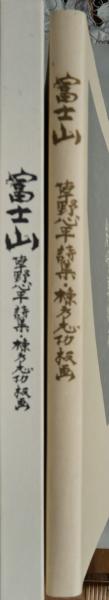 富士山 草野心平詩集・棟方志功板画
富士山 草野心平詩集・棟方志功板画